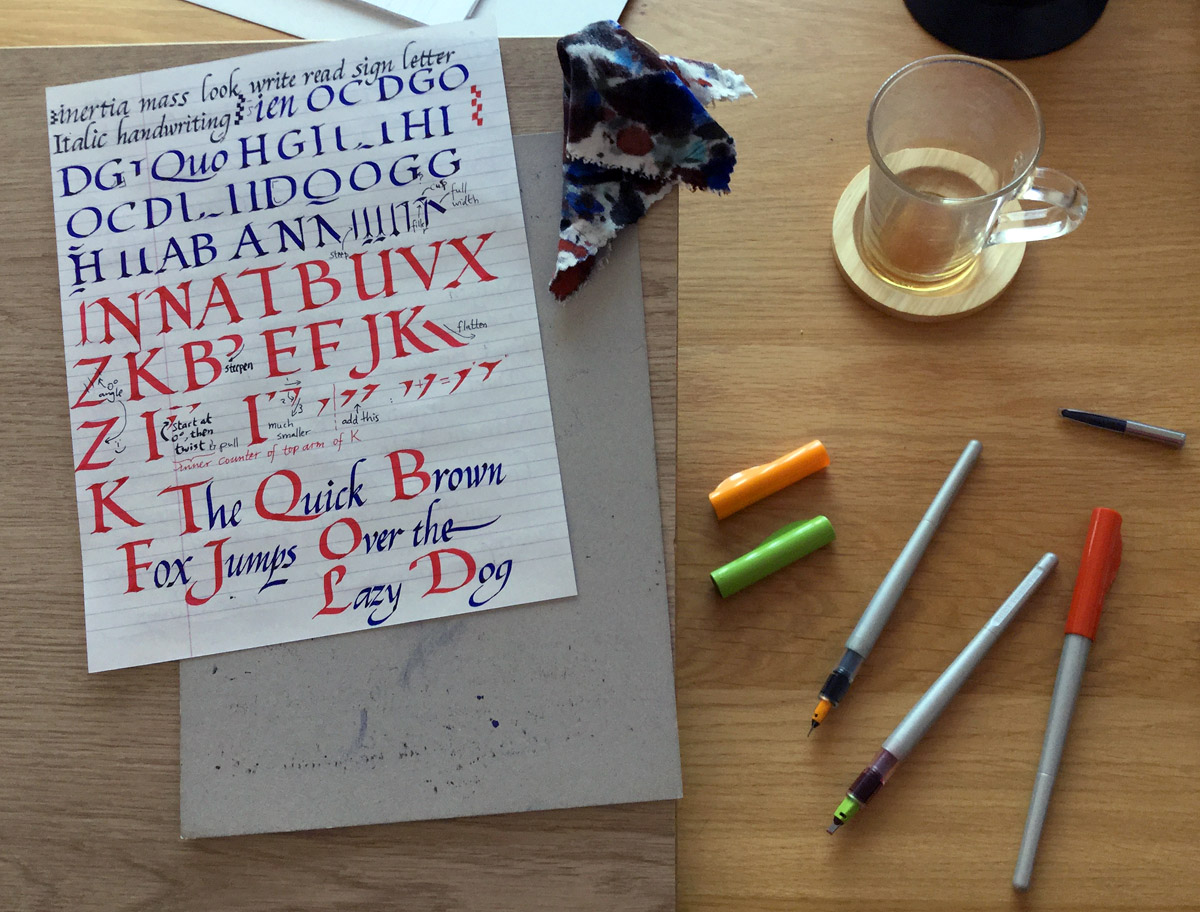 inertia mass look write read sign letter
Italic handwriting ien OC DGO
DG Quo HGIL ı HI
OCDL IIDQOGG
cup full width
H ıı AB ANN
steep fill
INNATBUVX
ZKB EF JK
flatten
steepen
0° angle
Z I I
start at 0°, then twist & pull
much smaller
2/3
add this
+ =
inner counter of top arm of K
K The Quick Brown
Fox Jumps Over the
Lazy Dog